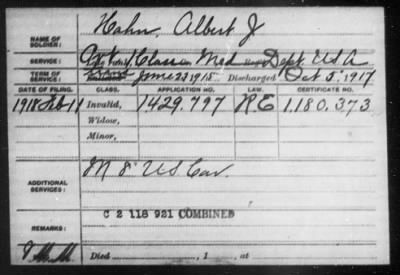 NAME OF SOLDIER: Hahn, Albert J
SERVICE: Pvt 1 Class Med Dept. USA
TERM OF SERVICE: June 23 1915 Discharged Oct 5, 1917
DATE OF FILING. CLASS. APPLICATION NO. LAW. CERTIFICATE NO.
1918 Feb 11 Invalid, 1429.797 R.E 1,180,373
Widow,
Minor,
ADDITIONAL SERVICES: M 8" US Cav.
C 2 118 921 COMBINED
REMARKS:
Died , 1 , at